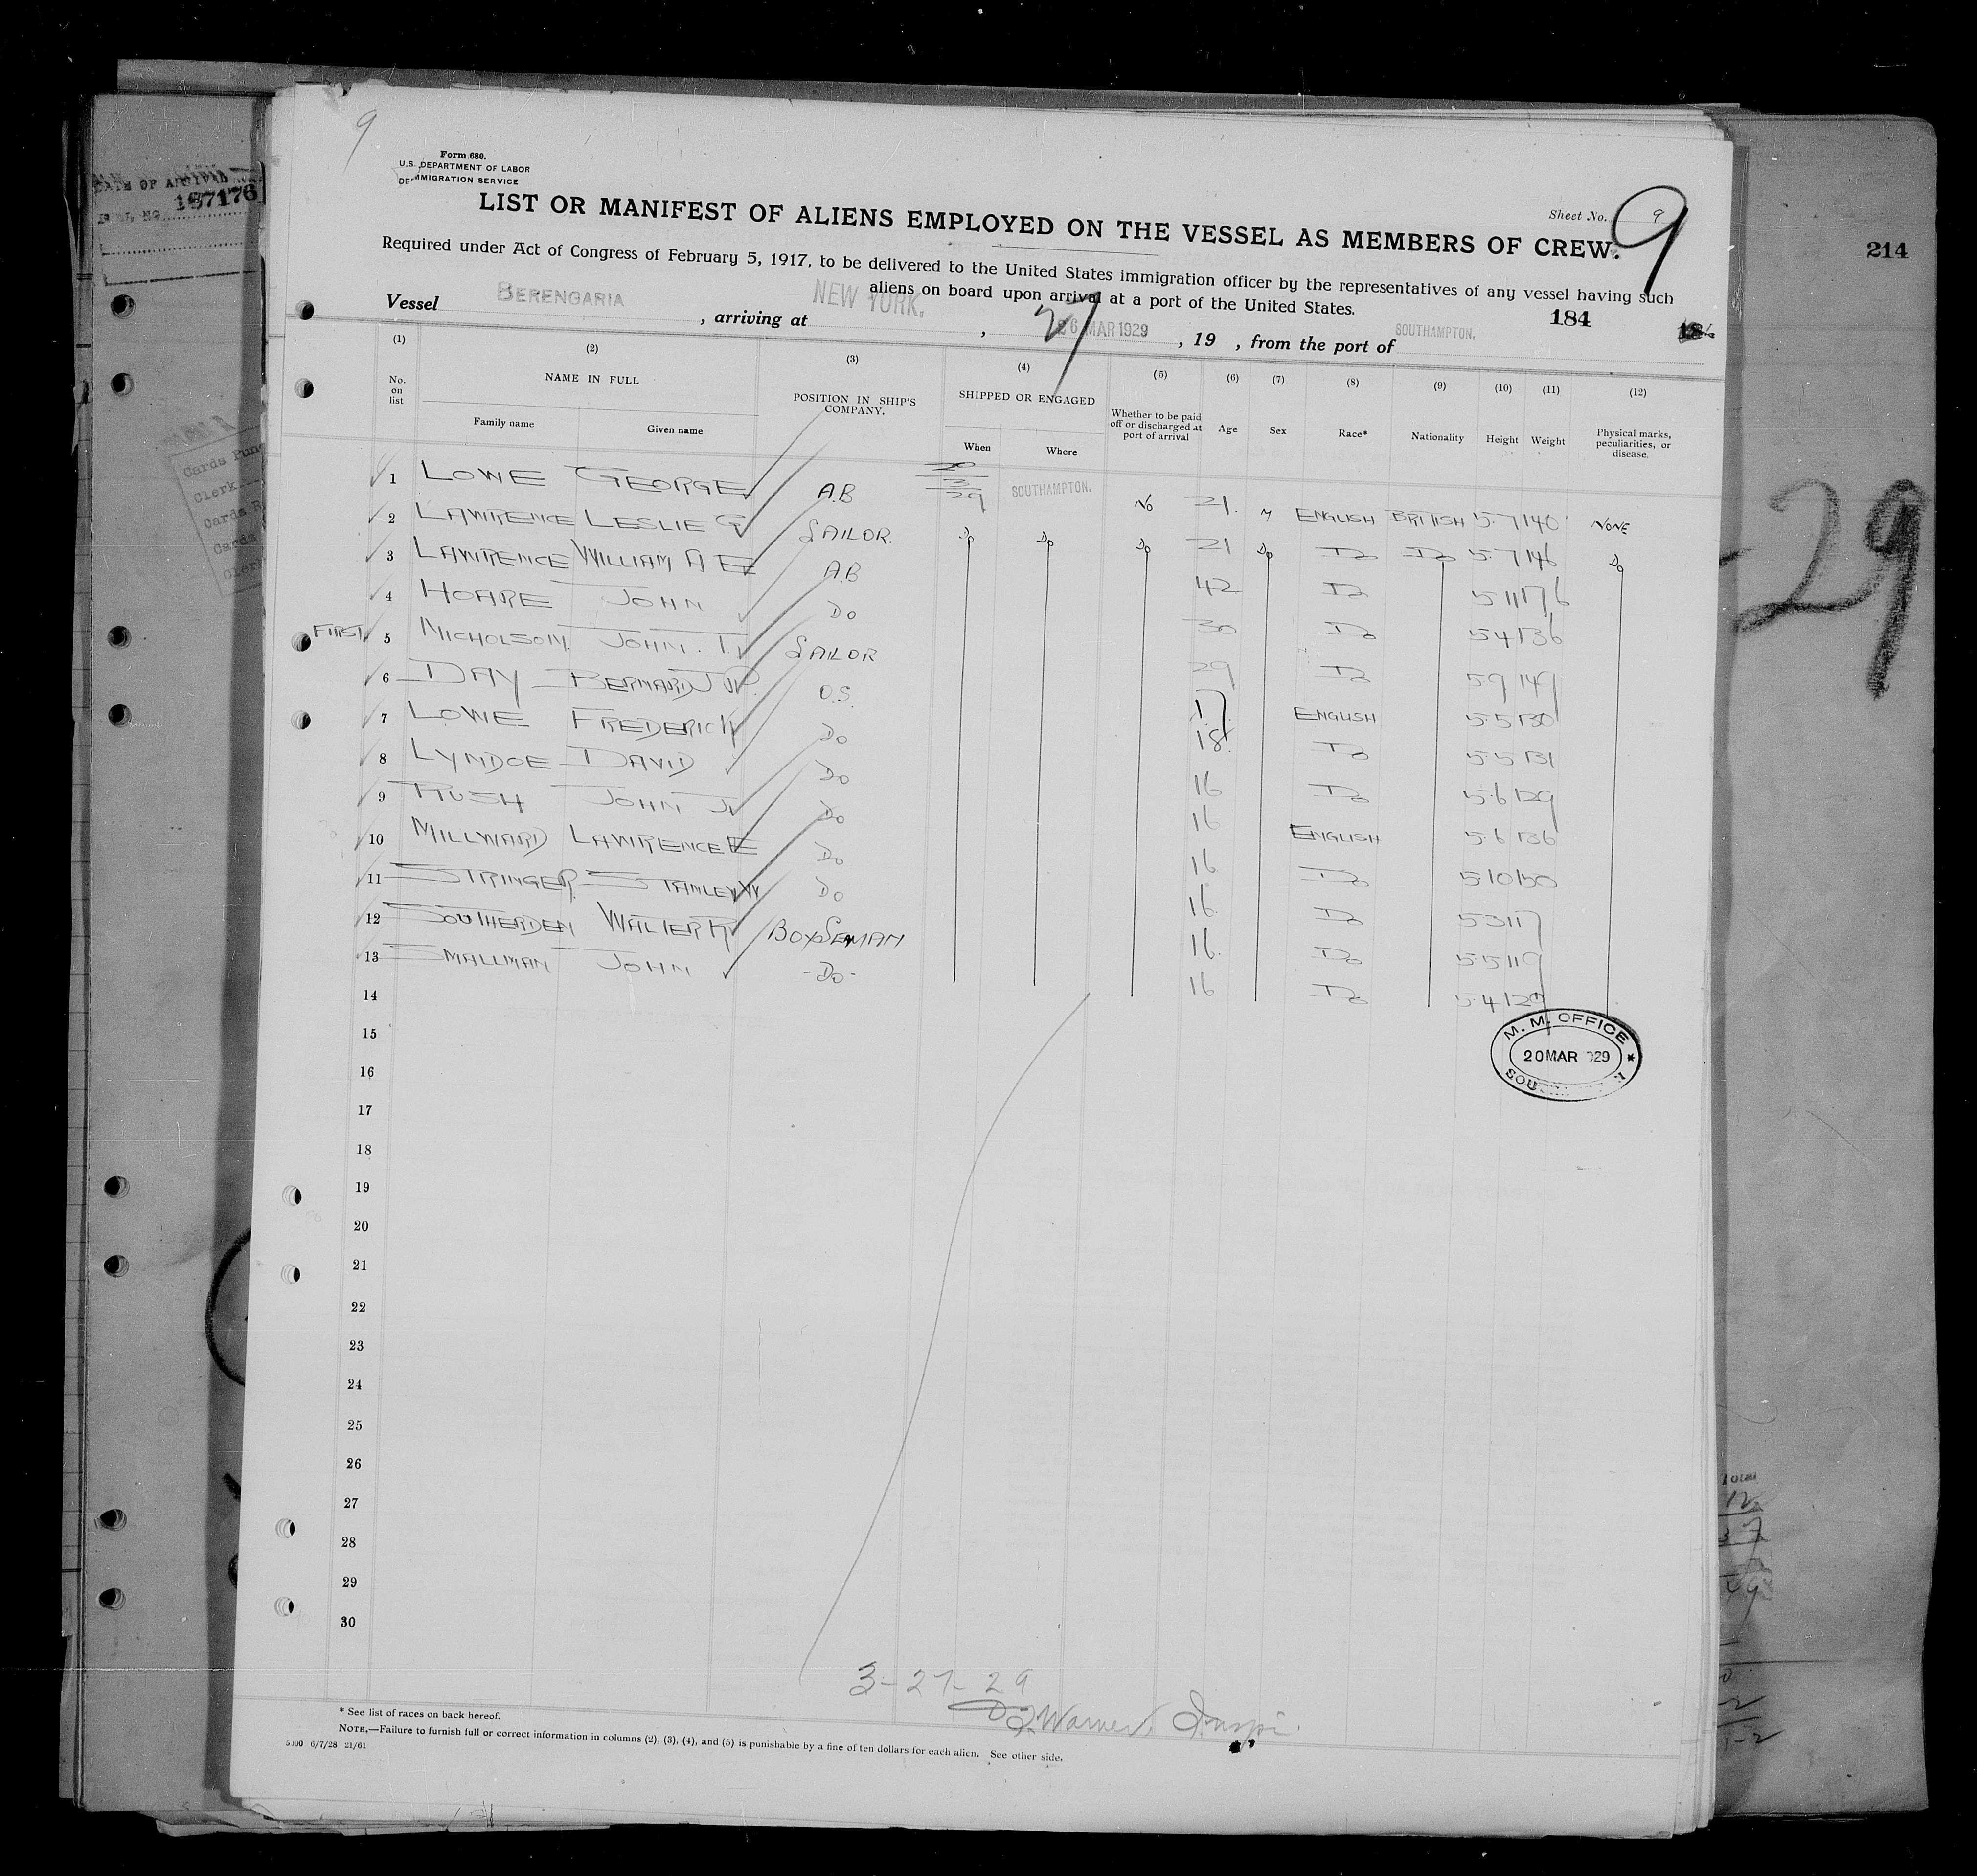 9
Form 680.
U.S. DEPARTMENT OF LABOR
IMMIGRATION SERVICE
Sheet No. 9
9
LIST OR MANIFEST OF ALIENS EMPLOYED ON THE VESSEL AS MEMBERS OF CREW.
Required under Act of Congress of February 5, 1917, to be delivered to the United States immigration officer by the representatives of any vessel having such
aliens on board upon arrival at a port of the United States.
184
Vessel BERENGARIA, arriving at NEW YORK., 27 26 MAR 1929, 19 , from the port of SOUTHAMPTON.
(1) (2) (3) (4) (5) (6) (7) (8) (9) (10) (11) (12)
No. on list NAME IN FULL POSITION IN SHIP'S COMPANY. SHIPPED OR ENGAGED Whether to be paid off or discharged at port of arrival Age Sex Race* Nationality Height Weight Physical marks, peculiarities, or disease.
Family name Given name When Where
1 LOWE GEORGE A.B 20 3 29 SOUTHAMPTON. NO 21. M ENGLISH BRITISH 5.7 140 NONE
2 LAWRENCE LESLIE G SAILOR. Do Do Do 21 Do Do Do 5.7 146 Do
3 LAWRENCE WILLIAM A E A.B 42 Do 5 11 176
4 HOARE JOHN Do 30 Do 5 4 136
FIRST 5 NICHOLSON. JOHN. T. SAILOR 29 Do 5 9 149
6 DAY BERNARD J W. O.S. 17 ENGLISH 5.5 130
7 LOWE FREDERICK Do 18. Do 5.5 131
8 LYNDOE DAVID Do 16 Do 5.6 129
9 RUSH JOHN J Do 16 ENGLISH 5.6 136
10 MILLWARD LAWRENCE E Do 16 Do 5 10 150
11 STRINGER STANLEY W Do 16. Do 5 3 117
12 SOUTHERDEN WALTER R BOY SEAMAN 16. Do 5.5 119
13 SMALLMAN JOHN -Do- 16 Do 5.4 129
14
15
16
17
18
19
20
21
22
23
24
25
26
27
28
29
30
M. M. OFFICE
20 MAR 929
3-27-29
Warner
* See list of races on back hereof.
NOTE.—Failure to furnish full or correct information in columns (2), (3), (4), and (5) is punishable by a fine of ten dollars for each alien. See other side.
6/7/28 21/61
187176
Clerk
214
29